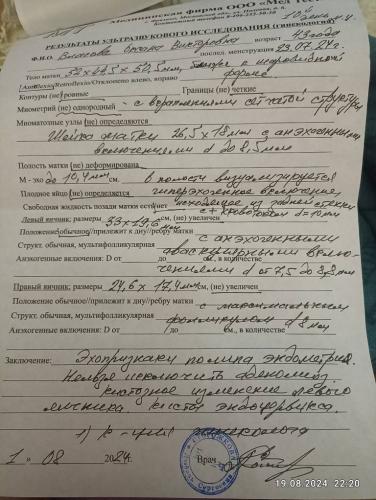 Медицинская фирма ООО «Мед
РЕЗУЛЬТАТЫ УЛЬТРАЗВУКОВОГО ИССЛЕДОВАНИЯ (гинекология)
Ф.И.О. Оксана Викторовна возраст 43 года
последн. менструация 23.07.24г.
Тело матки 52 х 49,5 х 50,5 мм, форме
Anteflexio/Retroflexio/Отклонено влево, вправо
Контуры (не) ровные Границы (не) четкие
Миометрий (не) однородный - с вероятными сетчатой структуры
Миоматозные узлы (не) определяются
Шейка матки 26,5 х 18 мм с анэхогенными
включениями d до 8,5 мм
Полость матки (не) деформирована
М - эхо до 10,4 мм см. в полости визуализируется
Плодное яйцо (не) определяется гиперэхогенное включение,
Свободная жидкость позади матки есть/нет исходящее из задней стенки
с + кровотоком d=10мм
Левый яичник: размеры 33х19,6 см, (не) увеличен
Положение обычное//прилежит к дну//ребру матки с анэхогенными
Структ. обычная, мультифолликулярная аваскулярными вклю-
Анэхогенные включения: D от до см., в количестве чениями d от 7,5 до 8,8 мм
Правый яичник: размеры 24,6 х 17,4 мм см, (не) увеличен
Положение обычное//прилежит к дну//ребру матки с максимальным
Структ. обычная, мультифолликулярная фолликулом d 8 мм
Анэхогенные включения: D от до см., в количестве
Заключение: Эхопризнаки полипа эндометрия.
Нельзя исключить аденомиоз,
кистозное изменение левого
яичника, кисты эндоцервикса.
1) к-ция гинеколога
1 » 08 2024г. Врач
19.08.2024 22:20